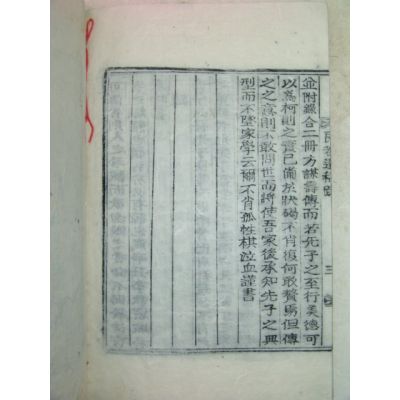 並附錄合二冊方謀壽傳而若先子之至行美德可
以爲柯則之實已備於狀碣不肖復何敢贅焉但傳
之之意則不敢問世而將使吾家後承知先子之典
型而不墜家學云爾不肖孤性棋泣血謹書